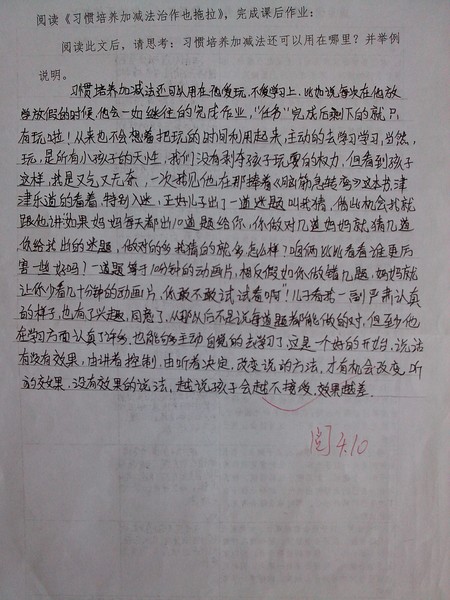 阅读《习惯培养加减法治作也拖拉》，完成课后作业：
阅读此文后，请思考：习惯培养加减法还可以用在哪里？并举例
说明。
习惯培养加减法还可以用在他爱玩，不爱学习上，比如说每次在他放
学放假的时候，他会一如继往的完成作业，"任务"完成后剩下的就只
有玩啦！从来也不会想着把玩的时间利用起来，主动的去学习学习，当然，
玩，是所有小孩子的天性，我们没有剥夺孩子玩耍的权力，但看到孩子
这样，真是又气又无奈，一次我见他在那捧着《脑筋急转弯》这本书，津
津乐道的看着，特别入迷，正好儿子出了一道迷题叫我猜，借此机会我就
跟他讲如果妈妈每天都出10道题给你，你做对几道妈妈就猜几道
你给我出的迷题，做对的多我猜的就多，怎么样？咱俩比比看看谁更厉
害一些好吗？一道题等于10分钟的动画片，相反假如你做错几题，妈妈就
让你少看几十分钟的动画片，你敢不敢试试看啊"！儿子看我一副严肃认真
的样子，也有了兴趣，同意了，从那以后不是说每道题都能做的对，但至少他
在学习方面认真了许多，也能够主动自觉的去学习了，这是一个好的开始，说话
有没有效果，由讲者控制，由听者决定，改变说的方法，才有机会改变，听
的效果，没有效果的说法，越说孩子会越不接受，效果越差.
阅 4.10